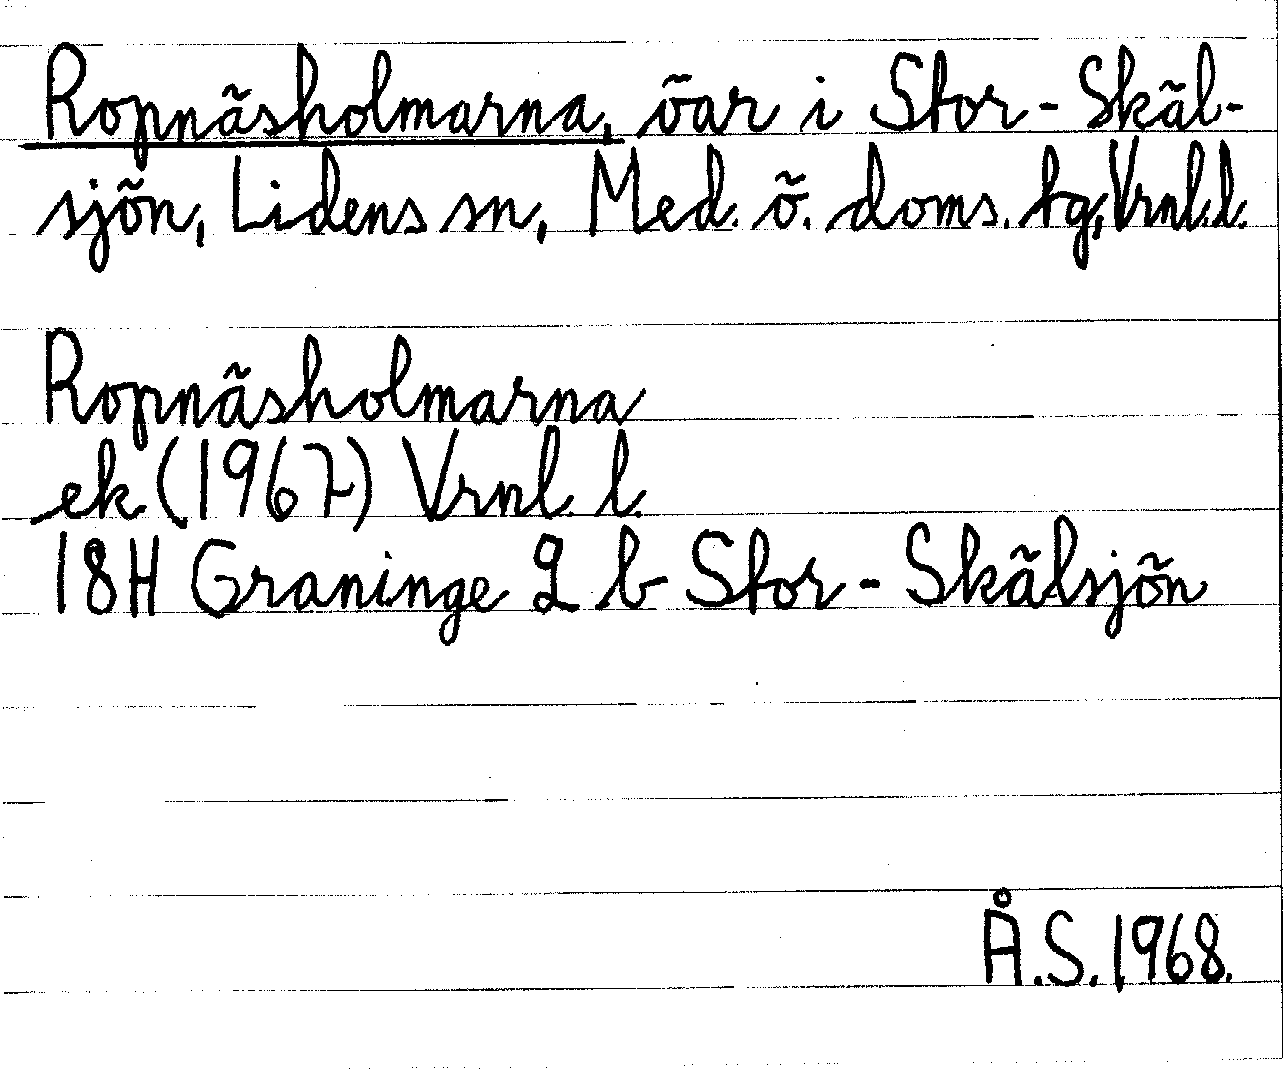 Ropnäsholmarna, öar i Stor-Skäl-
sjön, Lidens sn, Med. ö. doms. tg, Vrnl.l.
Ropnäsholmarna
ek (1967) Vrnl. l.
18H Graninge 2 b Stor-Skälsjön
Å.S. 1968.